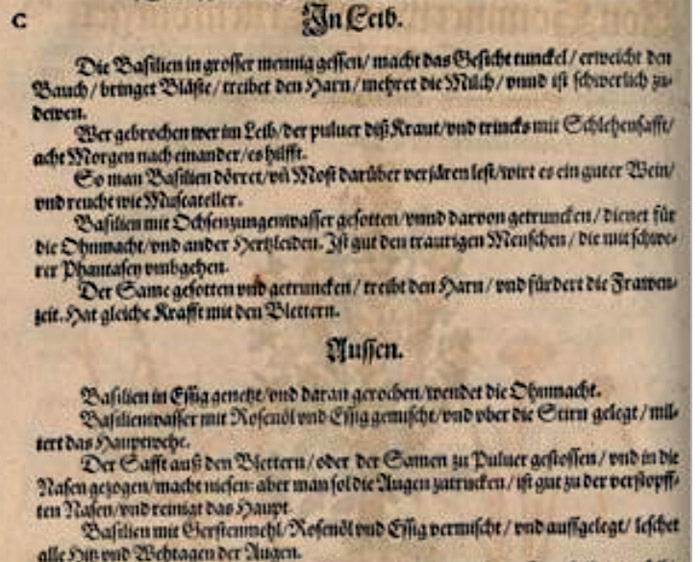 C
In Leib.
Die Basilien in grosser mennig gessen / macht das Gesicht tunckel / erweicht den
Bauch / bringet Bläste / treibet den Harn / mehret die Milch / vnnd ist schwerlich zu-
dewen.
Wer gebrochen wer im Leib / der puluer diß Kraut / vnd trincks mit Schlehensafft /
acht Morgen nach einander / es hilfft.
So man Basilien dörret / vñ Most darüber verjären lest / wirt es ein guter Wein /
vnd reucht wie Muscateller.
Basilien mit Ochsenzungenwasser gesotten / vnnd darvon getruncken / dienet für
die Ohnmacht / vnd ander Hertzleiden. Ist gut den traurigen Menschen / die mit schwe-
rer Phantasey vmbgehen.
Der Same gesotten vnd getruncken / treibt den Harn / vnd fürdert die Frawen-
zeit. Hat gleiche Krafft mit den Blettern.
Aussen.
Basilien in Essig genetzt / vnd daran gerochen / wendet die Ohnmacht.
Basilienwasser mit Rosenöl vnd Essig gemischt / vnd vber die Stirn gelegt / mil-
tert das Hauptwehe.
Der Safft auß den Blettern / oder der Samen zu Puluer gestossen / vnd in die
Nasen gezogen / macht niesen: aber man sol die Augen zutrucken / ist gut zu der verstopff-
ten Nasen / vnd reinigt das Haupt.
Basilien mit Gerstenmehl / Rosenöl vnd Essig vermischt / vnd auffgelegt / leschet
alle Hitz vnd Wehtagen der Augen.